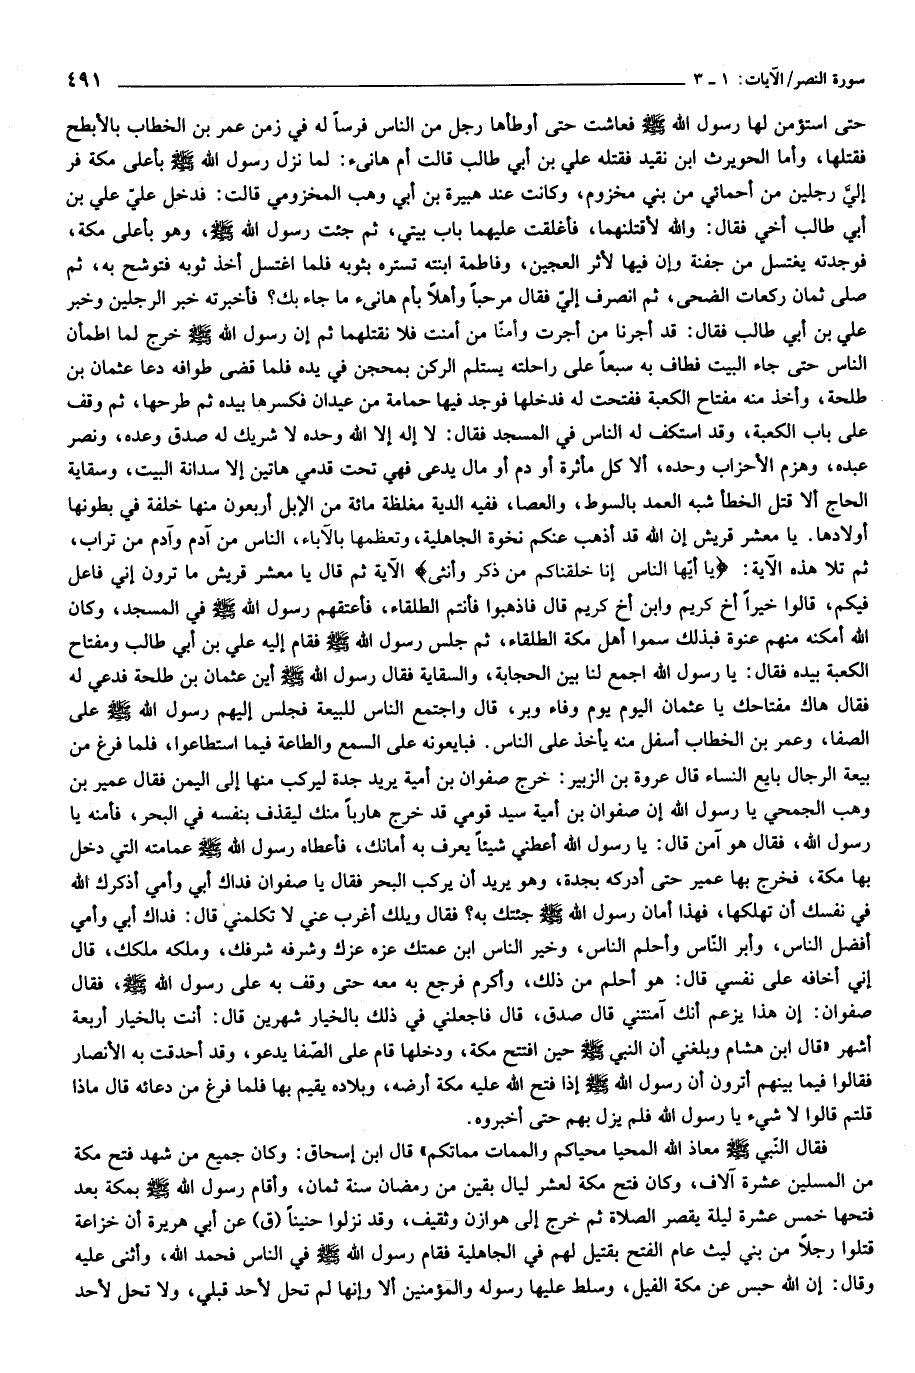 سورة النصر/ الآيات: ١ ـ ٣ ٤٩١
حتى استؤمن لها رسول الله ﷺ فعاشت حتى أوطأها رجل من الناس فرساً له في زمن عمر بن الخطاب بالأبطح
فقتلها، وأما الحويرث ابن نقيد فقتله علي بن أبي طالب قالت أم هانىء: لما نزل رسول الله ﷺ بأعلى مكة فر
إليَّ رجلين من أحمائي من بني مخزوم، وكانت عند هبيرة بن أبي وهب المخزومي قالت: فدخل عليّ علي بن
أبي طالب أخي فقال: والله لأقتلنهما، فأغلقت عليهما باب بيتي، ثم جئت رسول الله ﷺ، وهو بأعلى مكة،
فوجدته يغتسل من جفنة وإن فيها لأثر العجين، وفاطمة ابنته تستره بثوبه فلما اغتسل أخذ ثوبه فتوشح به، ثم
صلى ثمان ركعات الضحى، ثم انصرف إليّ فقال مرحباً وأهلاً بأم هانىء ما جاء بك؟ فأخبرته خبر الرجلين وخبر
علي بن أبي طالب فقال: قد أجرنا من أجرت وأمنّا من أمنت فلا نقتلهما ثم إن رسول الله ﷺ خرج لما اطمأن
الناس حتى جاء البيت فطاف به سبعاً على راحلته يستلم الركن بمحجن في يده فلما قضى طوافه دعا عثمان بن
طلحة، وأخذ منه مفتاح الكعبة ففتحت له فدخلها فوجد فيها حمامة من عيدان فكسرها بيده ثم طرحها، ثم وقف
على باب الكعبة، وقد استكف له الناس في المسجد فقال: لا إله إلا الله وحده لا شريك له صدق وعده، ونصر
عبده، وهزم الأحزاب وحده، ألا كل مأثرة أو دم أو مال يدعى فهي تحت قدمي هاتين إلا سدانة البيت، وسقاية
الحاج ألا قتل الخطأ شبه العمد بالسوط، والعصا، ففيه الدية مغلظة مائة من الإبل أربعون منها خلفة في بطونها
أولادها. يا معشر قريش إن الله قد أذهب عنكم نخوة الجاهلية، وتعظمها بالآباء، الناس من آدم وآدم من تراب،
ثم تلا هذه الآية: ﴿يا أيّها الناس إنا خلقناكم من ذكر وأنثى﴾ الآية ثم قال يا معشر قريش ما ترون إني فاعل
فيكم، قالوا خيراً أخ كريم وابن أخ كريم قال فاذهبوا فأنتم الطلقاء، فأعتقهم رسول الله ﷺ في المسجد، وكان
الله أمكنه منهم عنوة فبذلك سموا أهل مكة الطلقاء، ثم جلس رسول الله ﷺ فقام إليه علي بن أبي طالب ومفتاح
الكعبة بيده فقال: يا رسول الله اجمع لنا بين الحجابة، والسقاية فقال رسول الله ﷺ أين عثمان بن طلحة فدعي له
فقال هاك مفتاحك يا عثمان اليوم يوم وفاء وبر، قال واجتمع الناس للبيعة فجلس إليهم رسول الله ﷺ على
الصفا، وعمر بن الخطاب أسفل منه يأخذ على الناس. فبايعونه على السمع والطاعة فيما استطاعوا، فلما فرغ من
بيعة الرجال بايع النساء قال عروة بن الزبير: خرج صفوان بن أمية يريد جدة ليركب منها إلى اليمن فقال عمير بن
وهب الجمحي يا رسول الله إن صفوان بن أمية سيد قومي قد خرج هارباً منك ليقذف بنفسه في البحر، فأمنه يا
رسول الله، فقال هو آمن قال: يا رسول الله أعطني شيئاً يعرف به أمانك، فأعطاه رسول الله ﷺ عمامته التي دخل
بها مكة، فخرج بها عمير حتى أدركه بجدة، وهو يريد أن يركب البحر فقال يا صفوان فداك أبي وأمي أذكرك الله
في نفسك أن تهلكها، فهذا أمان رسول الله ﷺ جئتك به؟ فقال ويلك أغرب عني لا تكلمني قال: فداك أبي وأمي
أفضل الناس، وأبر النّاس وأحلم الناس، وخير الناس ابن عمتك عزه عزك وشرفه شرفك، وملكه ملكك، قال
إني أخافه على نفسي قال: هو أحلم من ذلك، وأكرم فرجع به معه حتى وقف به على رسول الله ﷺ، فقال
صفوان: إن هذا يزعم أنك آمنتني قال صدق، قال فاجعلني في ذلك بالخيار شهرين قال: أنت بالخيار أربعة
أشهر «قال ابن هشام وبلغني أن النبي ﷺ حين افتتح مكة، ودخلها قام على الصّفا يدعو، وقد أحدقت به الأنصار
فقالوا فيما بينهم أترون أن رسول الله ﷺ إذا فتح الله عليه مكة أرضه، وبلاده يقيم بها فلما فرغ من دعائه قال ماذا
قلتم قالوا لا شيء يا رسول الله فلم يزل بهم حتى أخبروه.
فقال النّبي ﷺ معاذ الله المحيا محياكم والممات مماتكم» قال ابن إسحاق: وكان جميع من شهد فتح مكة
من المسلين عشرة آلاف، وكان فتح مكة لعشر ليال بقين من رمضان سنة ثمان، وأقام رسول الله ﷺ بمكة بعد
فتحها خمس عشرة ليلة يقصر الصلاة ثم خرج إلى هوازن وثقيف، وقد نزلوا حنيناً (ق) عن أبي هريرة أن خزاعة
قتلوا رجلاً من بني ليث عام الفتح بقتيل لهم في الجاهلية فقام رسول الله ﷺ في الناس فحمد الله، وأثنى عليه
وقال: إن الله حبس عن مكة الفيل، وسلط عليها رسوله والمؤمنين ألا وإنها لم تحل لأحد قبلي، ولا تحل لأحد